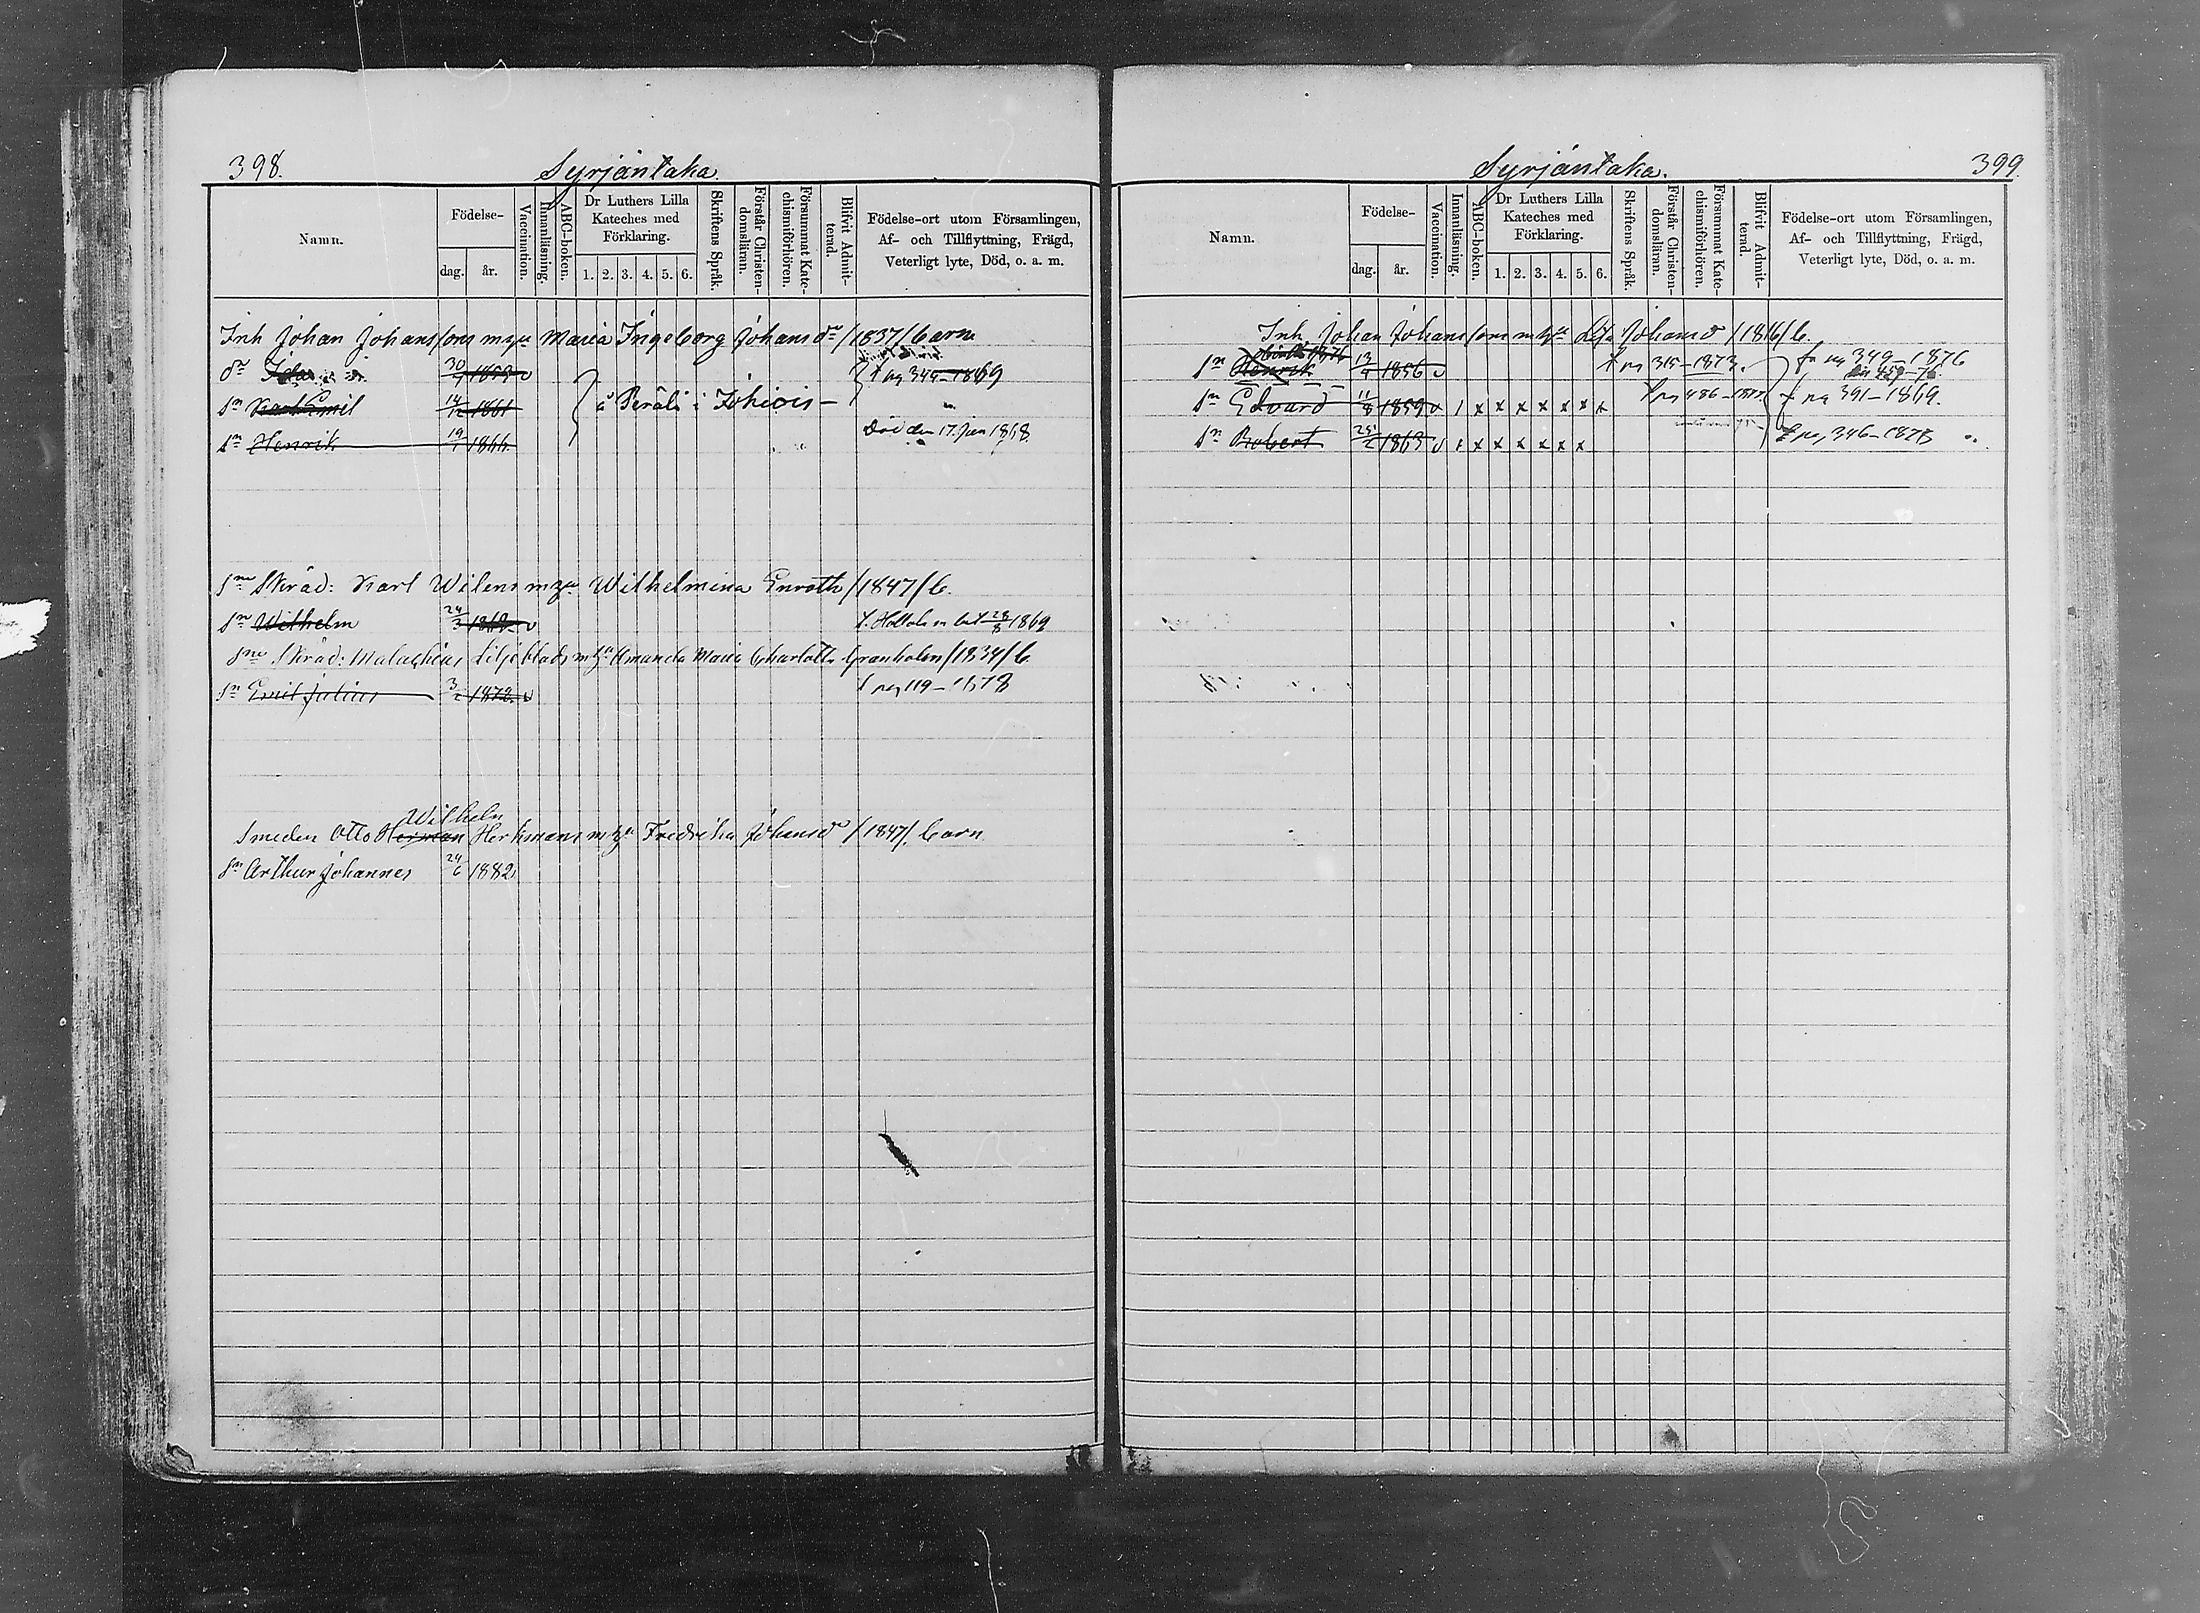 398. Syrjäntaka.
Namn. Födelse- dag. år. Vaccination. Innanläsning. ABC-boken. Dr Luthers Lilla Kateches med Förklaring. 1. 2. 3. 4. 5. 6. Skriftens Språk. Förstår Christendomsläran. Försummat Katechismiförhören. Blifvit Admitterad. Födelse-ort utom Församlingen, Af- och Tillflyttning, Frägd, Veterligt lyte, Död, o. a. m.
Inh Johan Johanssons m h u Maria Ingeborg Johansdr /1837/ barn
dr Ida 30 1859 v t pg 345-1869
sn Karl Emil 14/12 1861 å Perälä i Jokiois -
sn Henrik 19/1 1866 Död den 17. Jan 1868
sne Skräd: Karl Wilens m h u Wilhelmina Enroth /1847/ b.
sn Wilhelm 24/3 1869 v t. Hollola m bet 28/8 1869
sne Skräd: Malachias Liljeblads m h u Amanda Maria Charlotta Granholm /1834/ b
sn Emil Julius 3/2 1872 v t pag 119-1878
Wilhelm
Smeden Otto Herman Herkmans m h u Fredrika Johansdr /1847/ barn.
sn Arthur Johannes 24/6 1882
Syrjäntaka. 399.
Namn. Födelse- dag. år. Vaccination. Innanläsning. ABC-boken. Dr Luthers Lilla Kateches med Förklaring. 1. 2. 3. 4. 5. 6. Skriftens Språk. Förstår Christendomsläran. Försummat Katechismiförhören. Blifvit Admitterad. Födelse-ort utom Församlingen, Af- och Tillflyttning, Frägd, Veterligt lyte, Död, o. a. m.
Inh Johan Johanssons m h u Lisa Johansd /1816/ b.
sn Henrik 13 1856 v t pg 315-1873. fr pg 349-1876
sn Edvard 11/8 1859 v 1 x x x x x x x t pg 486 fr pg 391-1869.
sn Robert 25/2 1863 v x x x x x x x t pag 346-1873